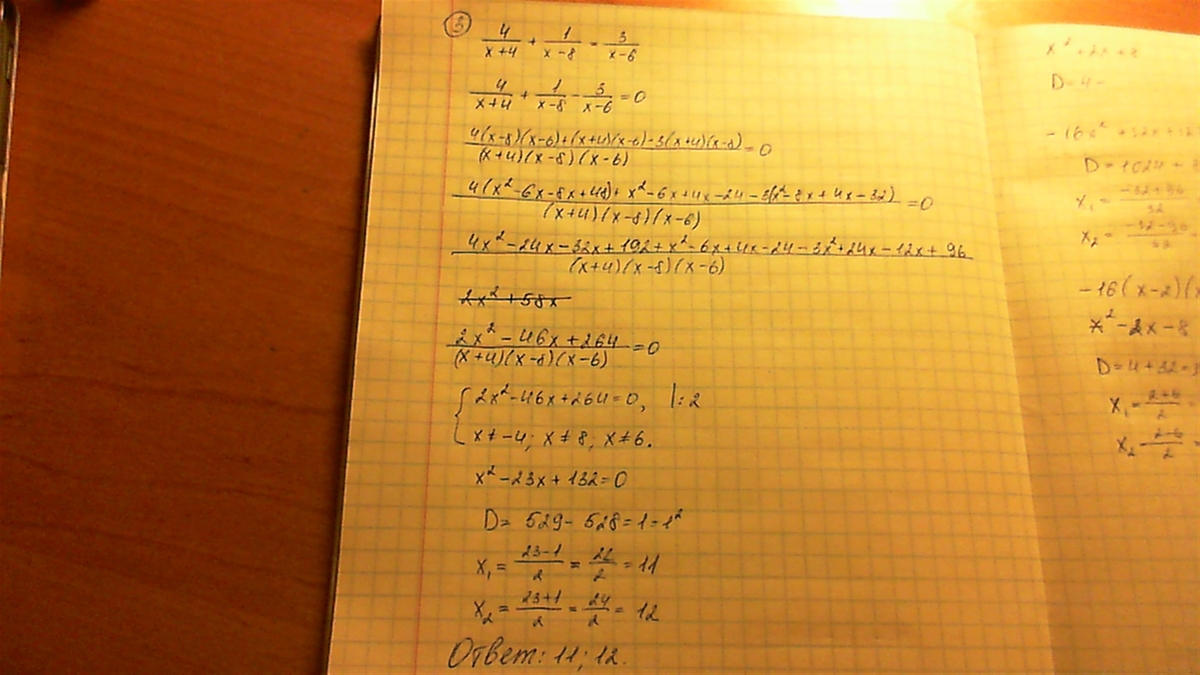 3
4/(x+4) + 1/(x-8) = 3/(x-6)
4/(x+4) + 1/(x-8) - 3/(x-6) = 0
(4(x-8)(x-6)+(x+4)(x-6)-3(x+4)(x-8))/((x+4)(x-8)(x-6)) = 0
(4(x²-6x-8x+48)+x²-6x+4x-24-3(x²-8x+4x-32))/((x+4)(x-8)(x-6)) = 0
(4x²-24x-32x+192+x²-6x+4x-24-3x²+24x-12x+96)/((x+4)(x-8)(x-6))
2x²+58x
(2x²-46x+264)/((x+4)(x-8)(x-6)) = 0
{ 2x²-46x+264=0, |:2
x≠-4; x≠8; x≠6.
x²-23x+132=0
D= 529-528=1=1²
x₁= (23-1)/2 = 22/2 = 11
x₂= (23+1)/2 = 24/2 = 12
Ответ: 11; 12.
D=4-
D=1024+
-16(x-2)(x
x²-2x-8
D=4+32=3